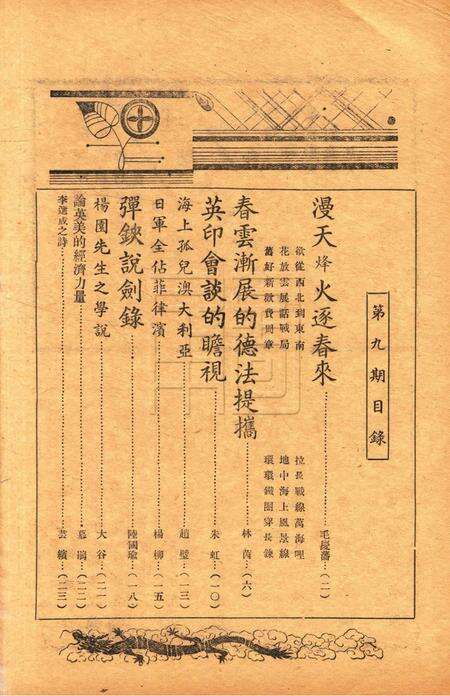 第九期目錄
漫天烽火逐春來……毛憂潘…(二)
欲從西北到東南
花放雲展話戰局
舊好新歡費周章
拉長戰線萬海哩
地中海上風景線
環環鐵圈穿長鍊
春雲漸展的德法提攜……林茵…(六)
英印會談的瞻視……朱虹…(一〇)
海上孤兒澳大利亞……趙璧…(一三)
日軍全佔菲律濱……楊柳…(一五)
彈鋏說劍錄……陸國瑜…(一八)
楊園先生之學說……大谷…(二一)
論英美的經濟力量……慕鴻…(二二)
李蓮成之詩……芸繽…(二三)